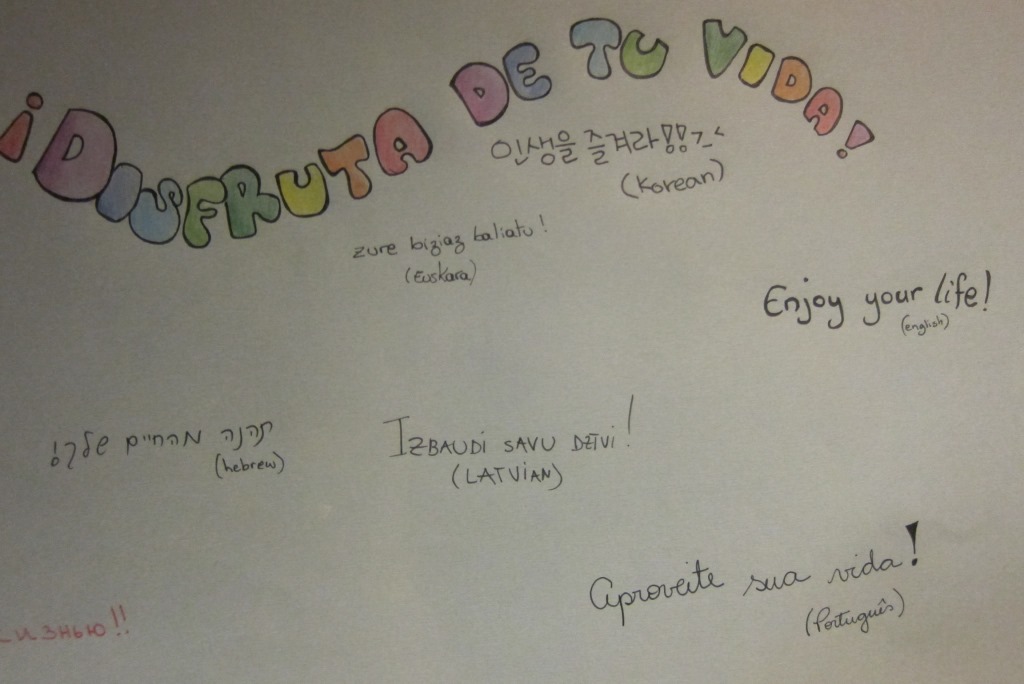 ¡DISFRUTA DE TU VIDA!
인생을 즐겨라!!!
(Korean)
zure biziaz baliatu!
(Euskara)
Enjoy your life!
(english)
תהנה מהחיים שלך!
(hebrew)
IZBAUDI SAVU DZĪVI!
(LATVIAN)
Aproveite sua vida!
(Português)
изнью!!